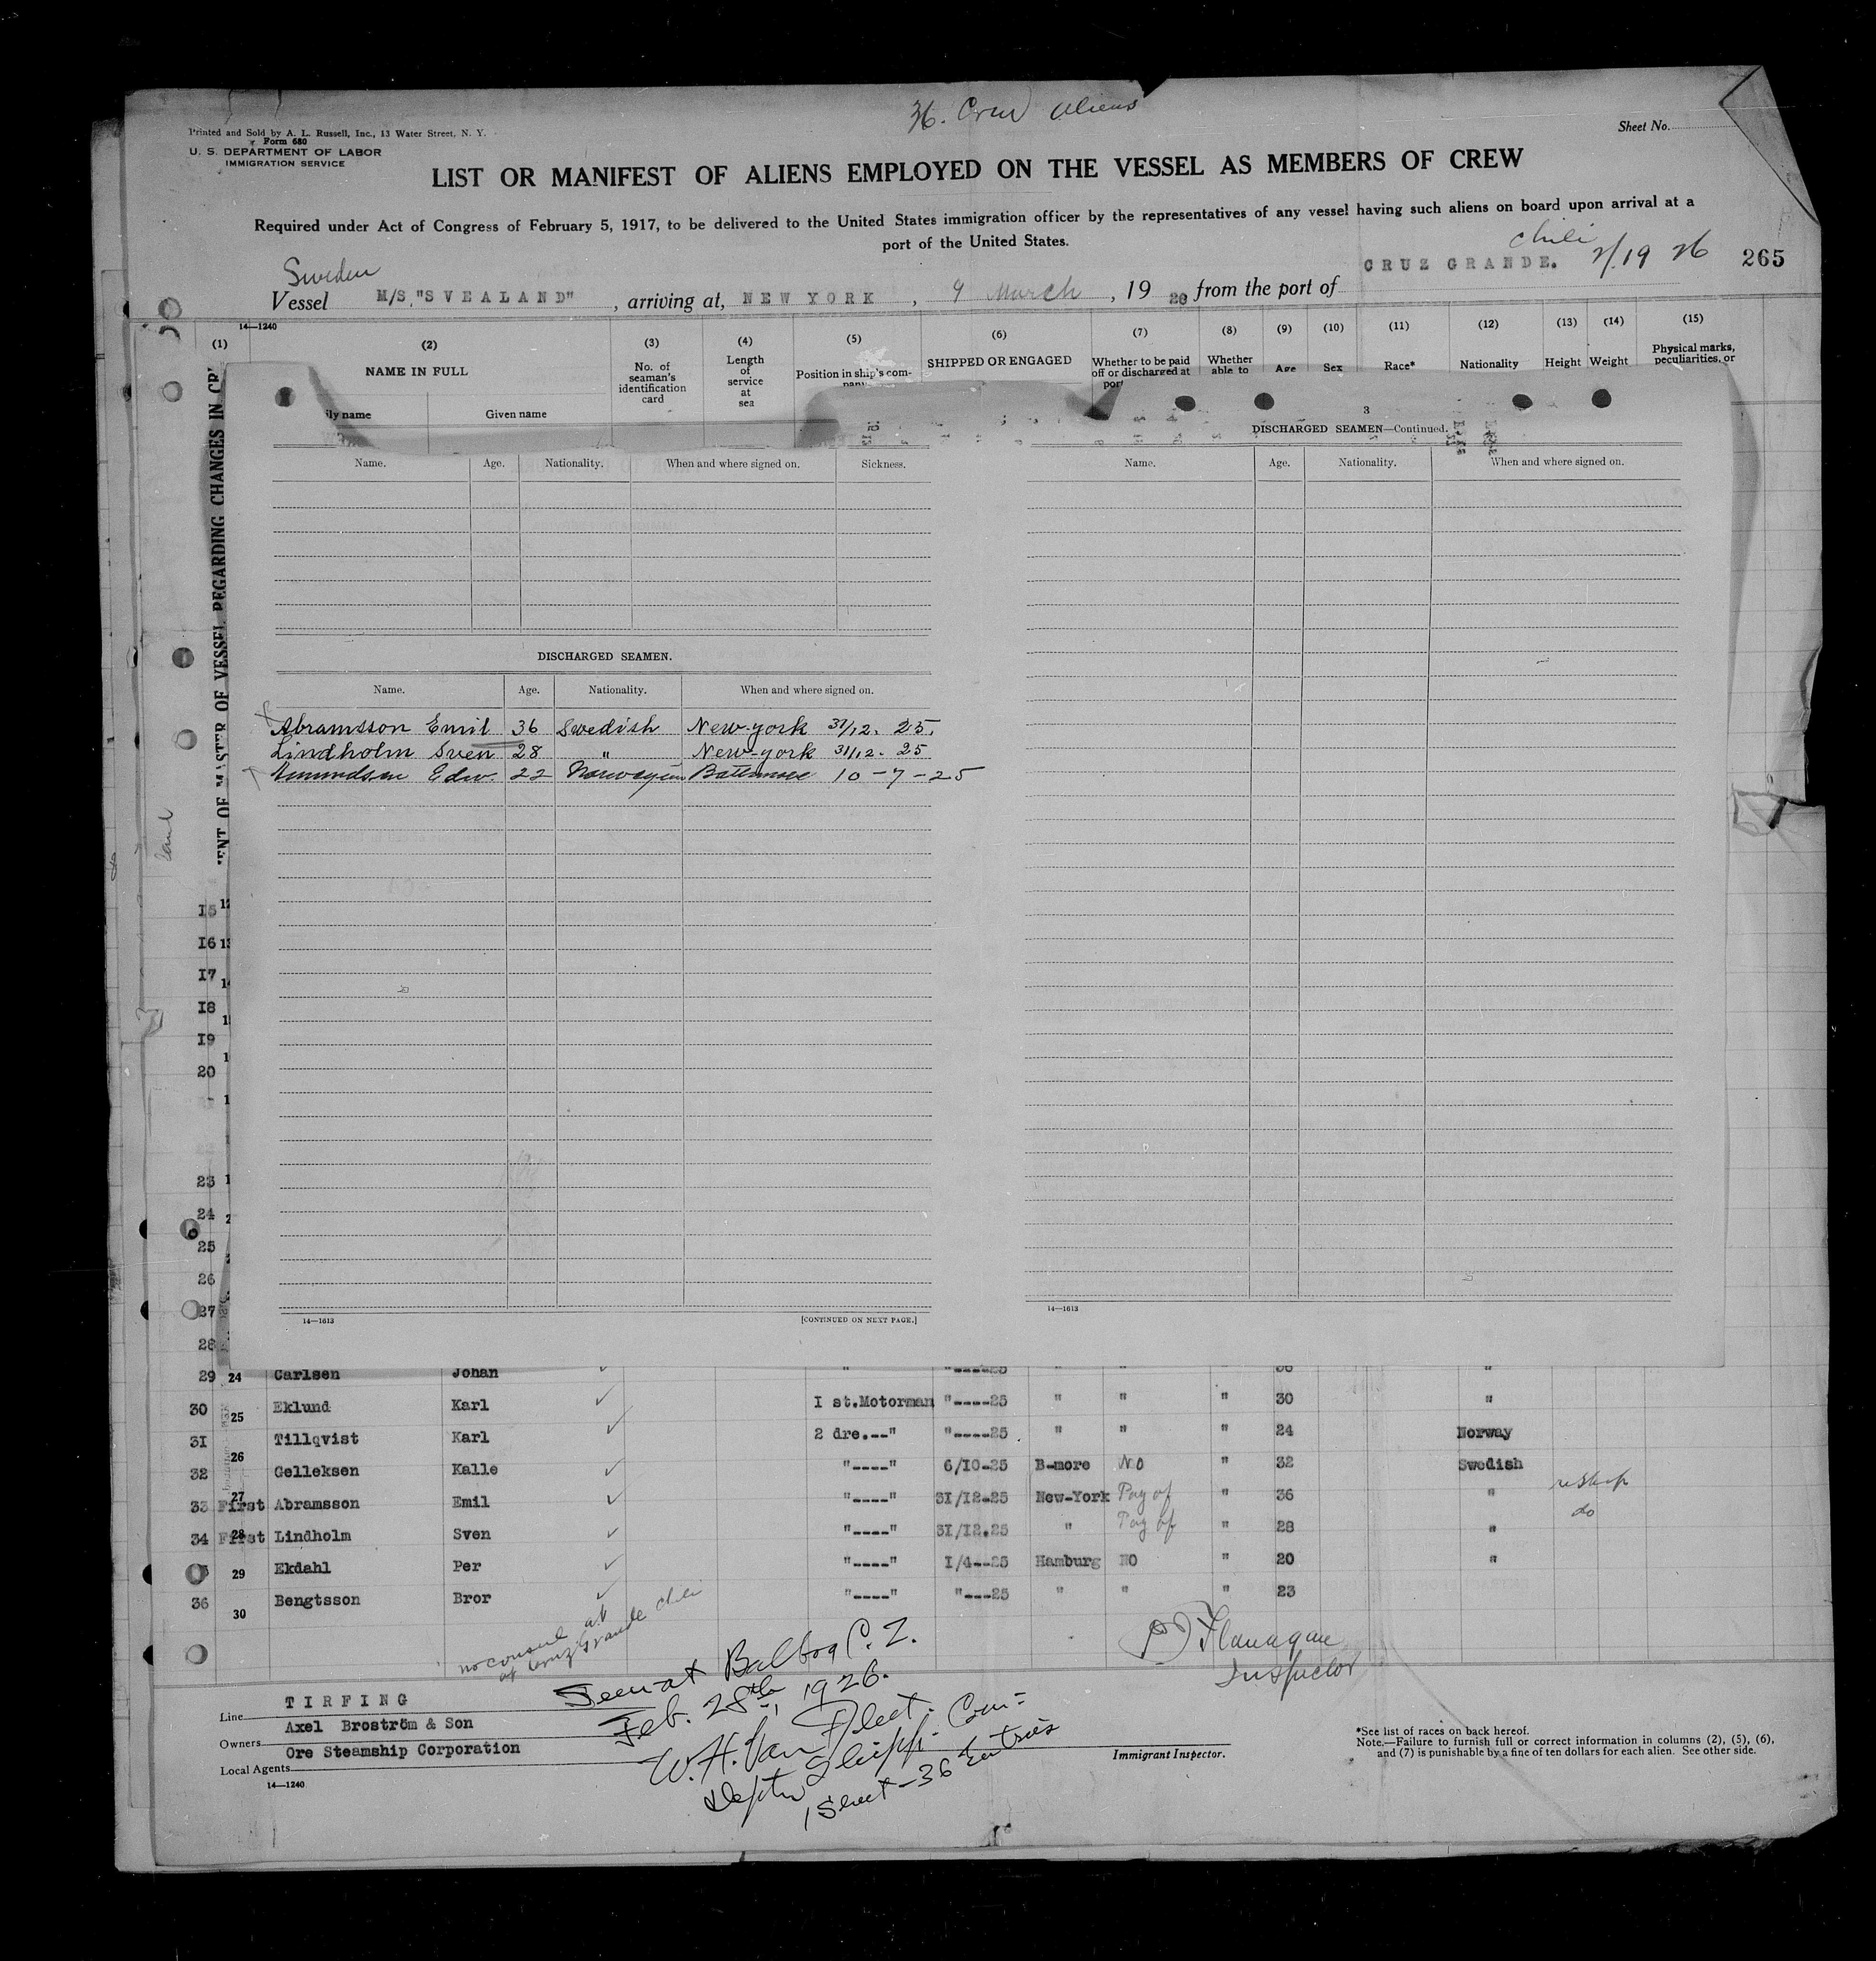 36. Crew Aliens
Printed and Sold by A. L. Russell, Inc., 13 Water Street, N. Y.
Form 680
U. S. DEPARTMENT OF LABOR
IMMIGRATION SERVICE
Sheet No.
LIST OR MANIFEST OF ALIENS EMPLOYED ON THE VESSEL AS MEMBERS OF CREW
Required under Act of Congress of February 5, 1917, to be delivered to the United States immigration officer by the representatives of any vessel having such aliens on board upon arrival at a
port of the United States.
Sweden
Chili
2/19 26
265
Vessel M/S. "SVEALAND", arriving at, NEW YORK, 9 March, 19 from the port of CRUZ GRANDE.
14—1240
(1) (2) (3) (4) (5) (6) (7) (8) (9) (10) (11) (12) (13) (14) (15)
NAME IN FULL
Given name
No. of seaman's identification card
Length of service at sea
Position in ship's com-
SHIPPED OR ENGAGED
Whether to be paid off or discharged at
Whether able to
Age
Sex
Race*
Nationality
Height
Weight
Physical marks, peculiarities, or
OF VESSEL REGARDING CHANGES IN
Name. Age. Nationality. When and where signed on. Sickness.
3
DISCHARGED SEAMEN—Continued.
Name. Age. Nationality. When and where signed on.
DISCHARGED SEAMEN.
Name. Age. Nationality. When and where signed on.
Abramsson Emil 36 Swedish New-york 31/12. 25.
Lindholm Sven 28 " New-york 31/12. 25
Edw. 22 Norwagian Baltimore 10-7-25
14—1613
[CONTINUED ON NEXT PAGE.]
14—1613
15
16
17
18
19
20
23
24
25
26
27
28
29 24 Carlsen Johan
30 25 Eklund Karl I st.Motorman "----25 " " " 30 "
31 26 Tillqvist Karl 2 dre.--" "----25 " " " 24 Norway
32 Gelleksen Kalle "----" 6/10-25 B-more NO " 32 Swedish
33 27 First Abramsson Emil "----" 31/12-25 New-York Pay of " 36 " reship
34 28 First Lindholm Sven "----" 31/12.25 " Pay of " 28 " do
29 Ekdahl Per "----" 1/4--25 Hamburg NO " 20 "
36 30 Bengtsson Bror "----" "---25 " " " 23
no consul at
at Cruz Grande Chili
Flanagan
Inspector
Seen at Balboa C. Z.
Feb. 28th, 1926.
W. H. Van Fleet.
Depty Shipp. Com:
1 Sheet-36 Entries
Line TIRFING
Owners Axel Broström & Son
Local Agents Ore Steamship Corporation
14—1240
Immigrant Inspector.
*See list of races on back hereof.
Note.—Failure to furnish full or correct information in columns (2), (5), (6),
and (7) is punishable by a fine of ten dollars for each alien. See other side.